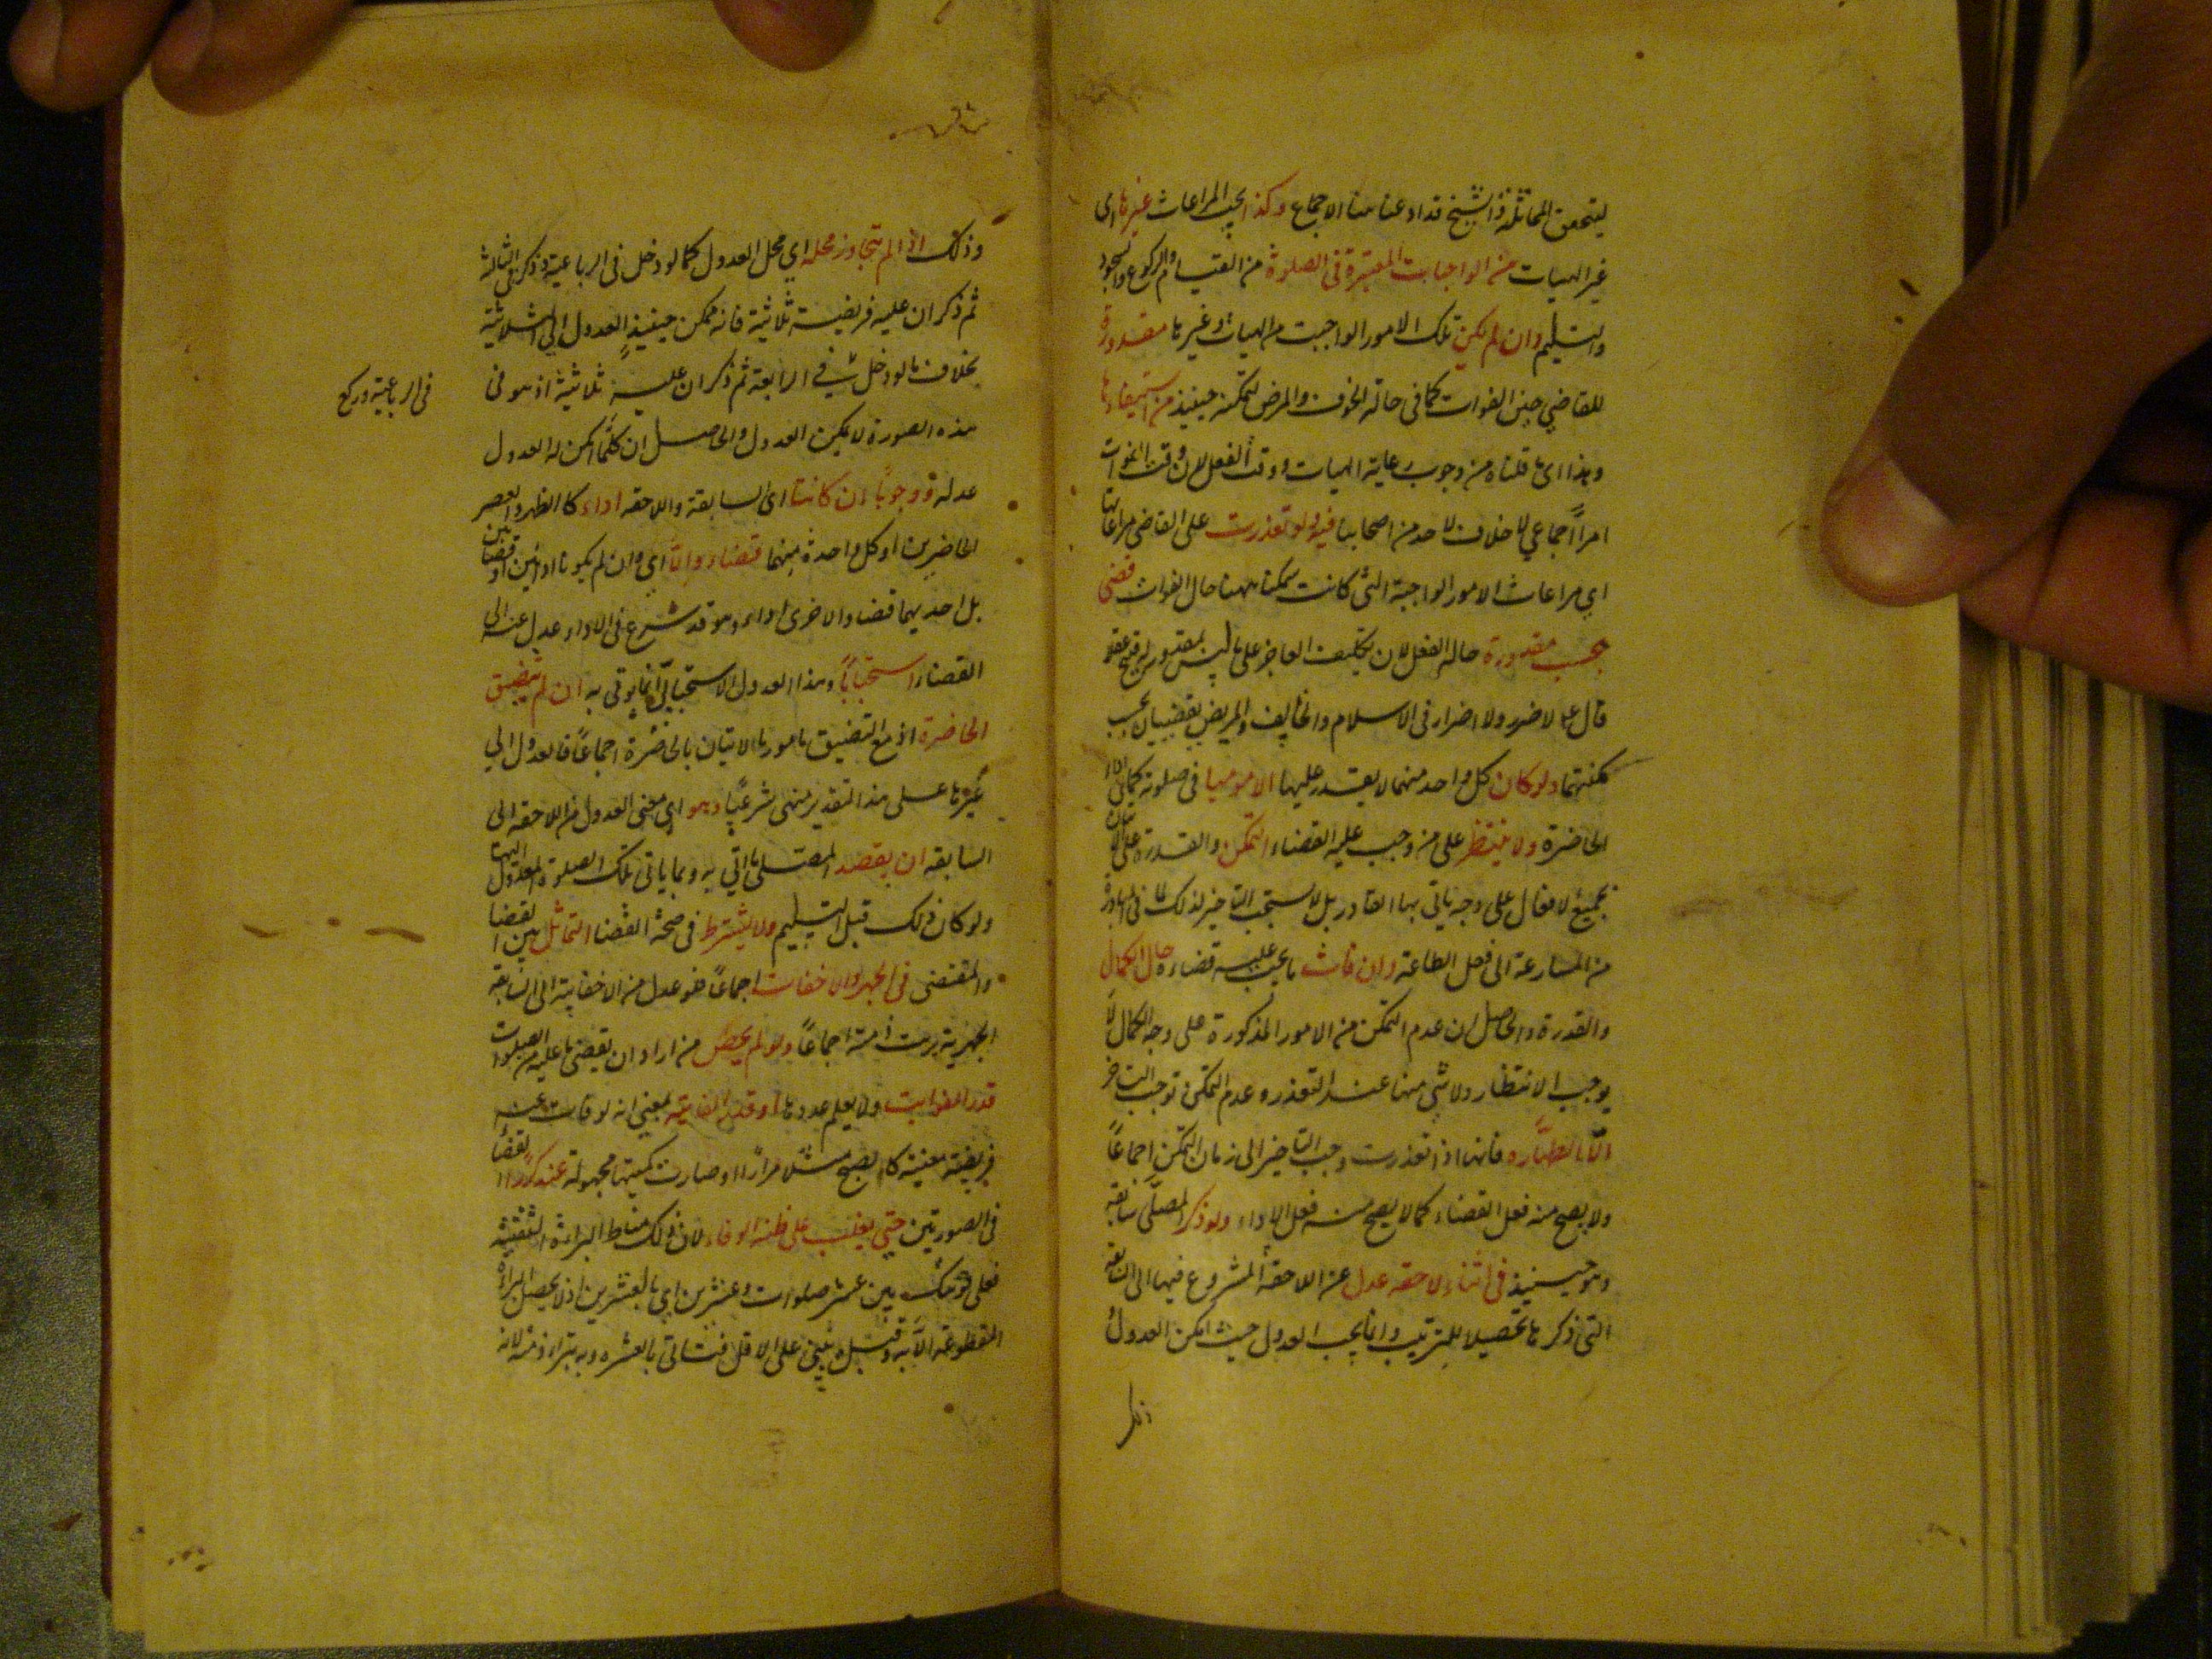 ليتحقق المماثلة والشيخ قد ادعى هنا الاجماع وكذا يجب المراعات غيرها اى
غير الهيات من الواجبات المعتبرة فى الصلوة من القيام والركوع والسجود
والتسليم وان لم يكن تلك الامور الواجبت من الهيات وغيرها مقدورة
للقاضي حين الفوات كما فى حالة الخوف والمرض لتمكنه حينيذ من استيفاءها
وهذا اى ما قلناه من وجوب رعاية الهيات وقت الفعل لان وقت الفوات
امراً اجماعي لا خلاف لاحد من اصحابنا فيه ولو تعذرت على القاضى مراعاتها
اي مراعات الامور الواجبة التى كانت ممكنا حال الفوات قضى
بحسب مقدوره حالة الفعل لان تكليف العاجز على ما ليس بمقدور له قبيح عقلا
قال ع لا ضرر ولا اضرار فى الاسلام والخايف والمريض يقضيان بحسب
مكنتهما ولو كان كل واحد منهما لا يقدر عليها الا موميا فى صلوته كما فى اداء
الحاضرة ولا ينتظر على من وجب عليه القضاء التمكن والقدرة على الاتيان
بجميع الافعال على وجه ياتى بها القادر بل لا يستحب التاخير لذلك لما فى المبادرة
من المسارعة الى فعل الطاعة وان فات ما يجب عليه قضاءه حال الكمال
والقدرة والحاصل ان عدم التمكن من الامور المذكورة على وجه الكمال لا
يوجب الانتظار ولا شى منها عند التعذر وعدم التمكن توجب التاخر
الا الطهارة فانها اذا تعذرت وجب التاخير الى زمان التمكن اجماعاً
ولا يصح منه فعل القضاء كما لا يصح منه فعل الاداء ولو ذكر المصلى سابقة
وهو حينيذ فى اثناء لاحقه عدل عن اللاحقة المشروع فيها الى السابقة
التى ذكرها تحصيلا للترتيب وانما يجب العدول حيث امكن العدول
وذلك اذا لم يتجاوز محله اي محل العدول كما لو دخل فى الرباعية وذكر فى الثالثة
ثم ذكر ان عليه فريضة ثلاثية فانه ممكن حينيذٍ العدول الى الثلاثية
بخلاف ما لو دخل فى الرابعة ثم ذكر ان عليه ثلاثية اذ هو فى
فى الرباعية وركع
هذه الصورة لا يمكن العدول والحاصل ان كلما امكن له العدول
عدل وجوباً ان كانتا اى السابقة واللاحقه اداء كالظهر والعصر
الحاضرين او كل واحدة منهما قضاء والا اي وان لم يكونا ادائين او قضائين
بل احديهما قضاء والاخرى اداء وهو قد شرع فى الاداء عدل عنه الى
القضاء استحباباً وهذا العدول الاستحبابي انما يوتى به ان لم يتضيق
الحاضرة اذ مع التضيق مامور بالاتيان بالحاضرة اجماعاً فالعدول الي
غيرها على هذا التقدير منهى شرعياً وهو اي معنى العدول من اللاحقه الى
السابقه ان يقصد المصلى ما اتي به وما ياتى تلك الصلوة المعدول اليها
ولو كان ذلك قبل التسليم ولا يشترط فى صحة القضا التماثل بين القضا
والمقتضى فى الجهر والاخفات اجماعاً فلو عدل من الاخفاتية الى السابقة
الجهرية برءت ذمته اجماعاً ولو لم يحص من اراد ان يقضى ما عليه من الصلوات
قدر الفوايت ولا يعلم عددها او قدر الفايتة بمعنى انه لو فات عنه
فريضة معينة كالصبح مثلا مراراً وصارت كميتها مجهولة عنده كرر القضا
فى الصورتين حتى يغلب على ظنه الوفاء لان ذلك مناط البراءة اليقينية
فعلى هو شك بين عشر صلوات وعشرين اي بالعشرين اذ لا يحصل البراءة
المقطوعة الا به وقيل يبنى على الاقل فتاتى بالعشره وبه تبراء ذمته لانه